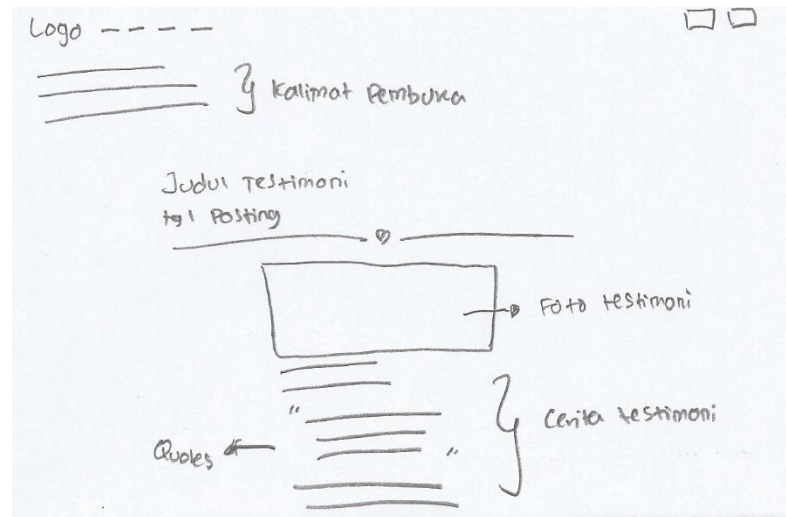 Logo - - - -
Kalimat Pembuka
Judul Testimoni
tgl Posting
Foto testimoni
Cerita testimoni
"
Quotes
"